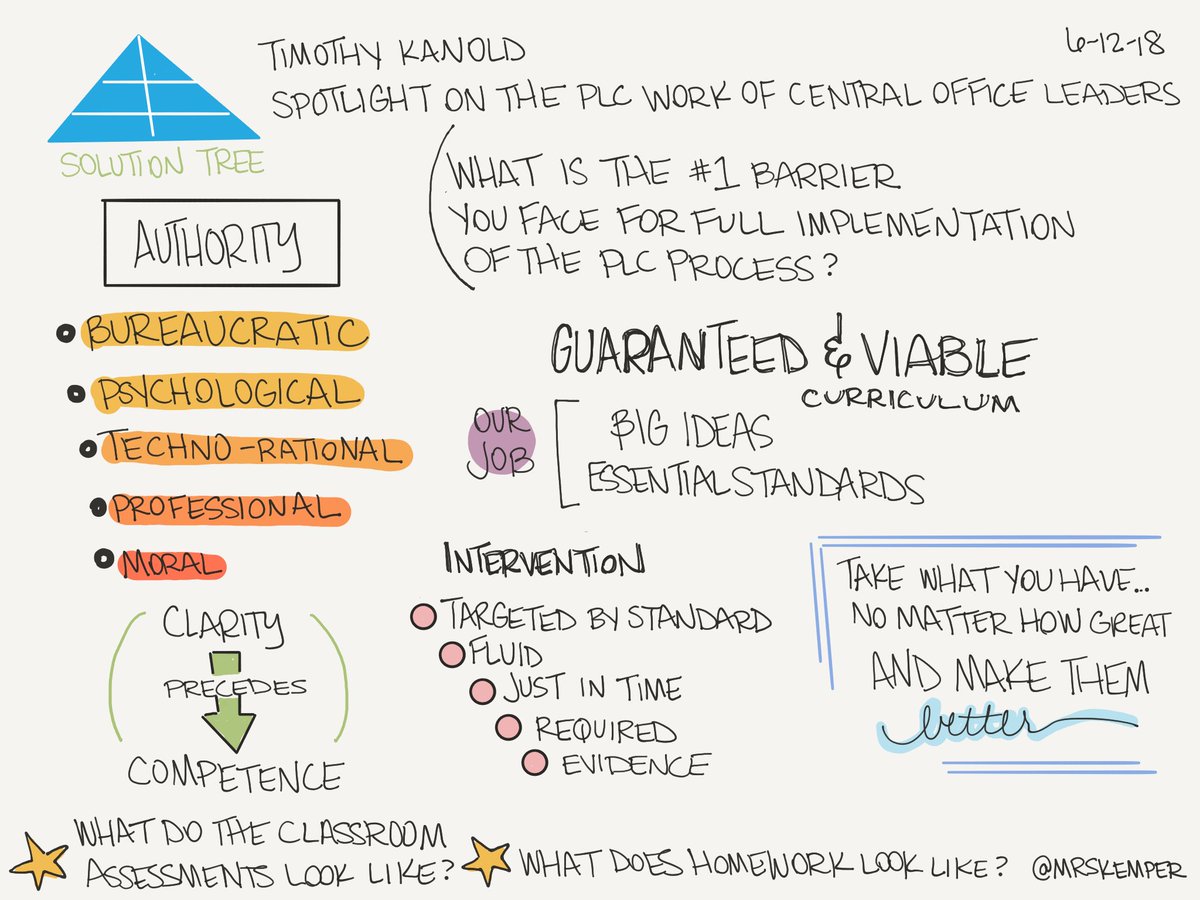 TIMOTHY KANOLD
6-12-18
SPOTLIGHT ON THE PLC WORK OF CENTRAL OFFICE LEADERS
SOLUTION TREE
WHAT IS THE #1 BARRIER
YOU FACE FOR FULL IMPLEMENTATION
OF THE PLC PROCESS?
AUTHORITY
BUREAUCRATIC
PSYCHOLOGICAL
TECHNO-RATIONAL
PROFESSIONAL
MORAL
GUARANTEED & VIABLE
CURRICULUM
OUR
JOB
BIG IDEAS
ESSENTIAL STANDARDS
CLARITY
PRECEDES
COMPETENCE
INTERVENTION
TARGETED BY STANDARD
FLUID
JUST IN TIME
REQUIRED
EVIDENCE
TAKE WHAT YOU HAVE...
NO MATTER HOW GREAT
AND MAKE THEM
better
WHAT DO THE CLASSROOM
ASSESSMENTS LOOK LIKE?
WHAT DOES HOMEWORK LOOK LIKE?
@MRSKEMPER